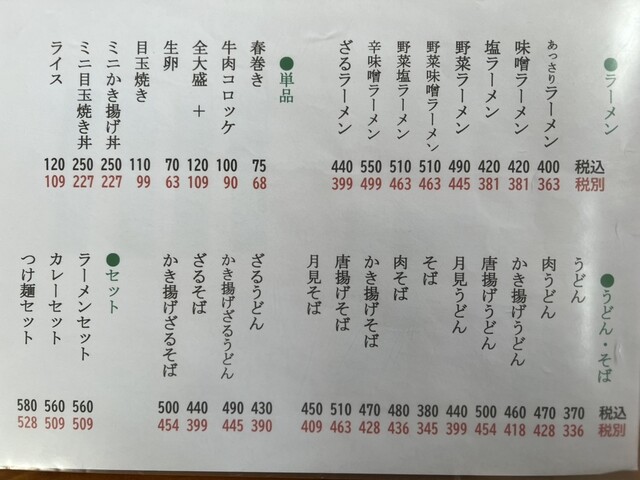 ●ラーメン
税込 税別
あっさりラーメン 400 363
味噌ラーメン 420 381
塩ラーメン 420 381
野菜ラーメン 490 445
野菜味噌ラーメン 510 463
野菜塩ラーメン 510 463
辛味噌ラーメン 550 499
ざるラーメン 440 399
●単品
春巻き 75 68
牛肉コロッケ 100 90
全大盛 + 120 109
生卵 70 63
目玉焼き 110 99
ミニかき揚げ丼 250 227
ミニ目玉焼き丼 250 227
ライス 120 109
●うどん・そば
税込 税別
うどん 370 336
肉うどん 470 428
かき揚げうどん 460 418
唐揚げうどん 500 454
月見うどん 440 399
そば 380 345
肉そば 480 436
かき揚げそば 470 428
唐揚げそば 510 463
月見そば 450 409
ざるうどん 430 390
かき揚げざるうどん 490 445
ざるそば 440 399
かき揚げざるそば 500 454
●セット
ラーメンセット 560 509
カレーセット 560 509
つけ麺セット 580 528